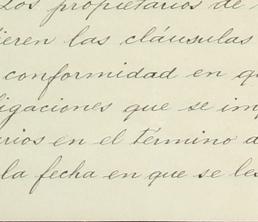 los propietarios de
ieren las cláusulas
conformidad en q
ligaciones que se im
arios en el término d
la fecha en que se les